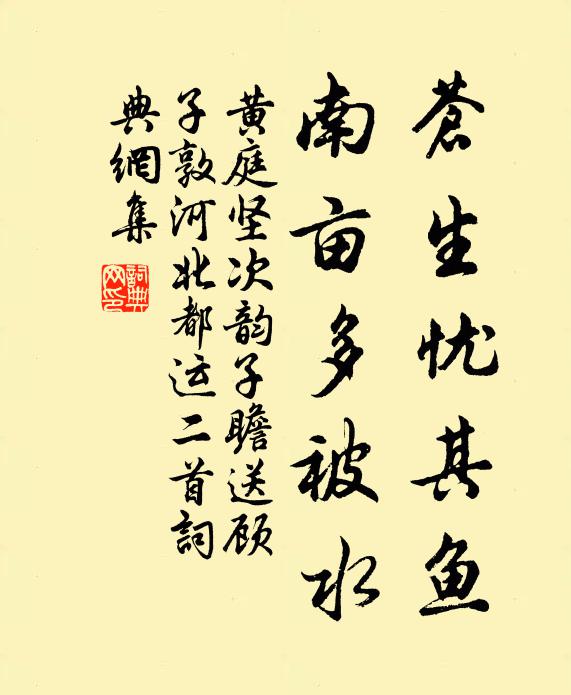 苍生忧其鱼
南亩多被水
黄庭坚次韵子瞻送顾
子敦河北都运二首詞
典網集
詞典
网印